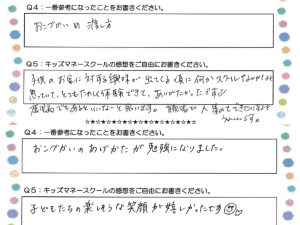 Q4：一番参考になったことをお書きください。
おこづかいの渡し方
Q5：キッズマネースクールの感想をご自由にお書きください。
子供のお金に対する興味が出てくる頃に何かスクールてきなものをと
思っていて、とてもたのしく体験できて、ありがたかったです
いいなーと思います。
☆☆☆☆☆☆☆☆☆☆☆☆☆☆☆☆☆☆☆☆☆☆
Q4：一番参考になったことをお書きください。
おこづかいのあげかたが勉強になりました。
Q5：キッズマネースクールの感想をご自由にお書きください。
子どもたちの楽しそうな笑顔が嬉しかったです